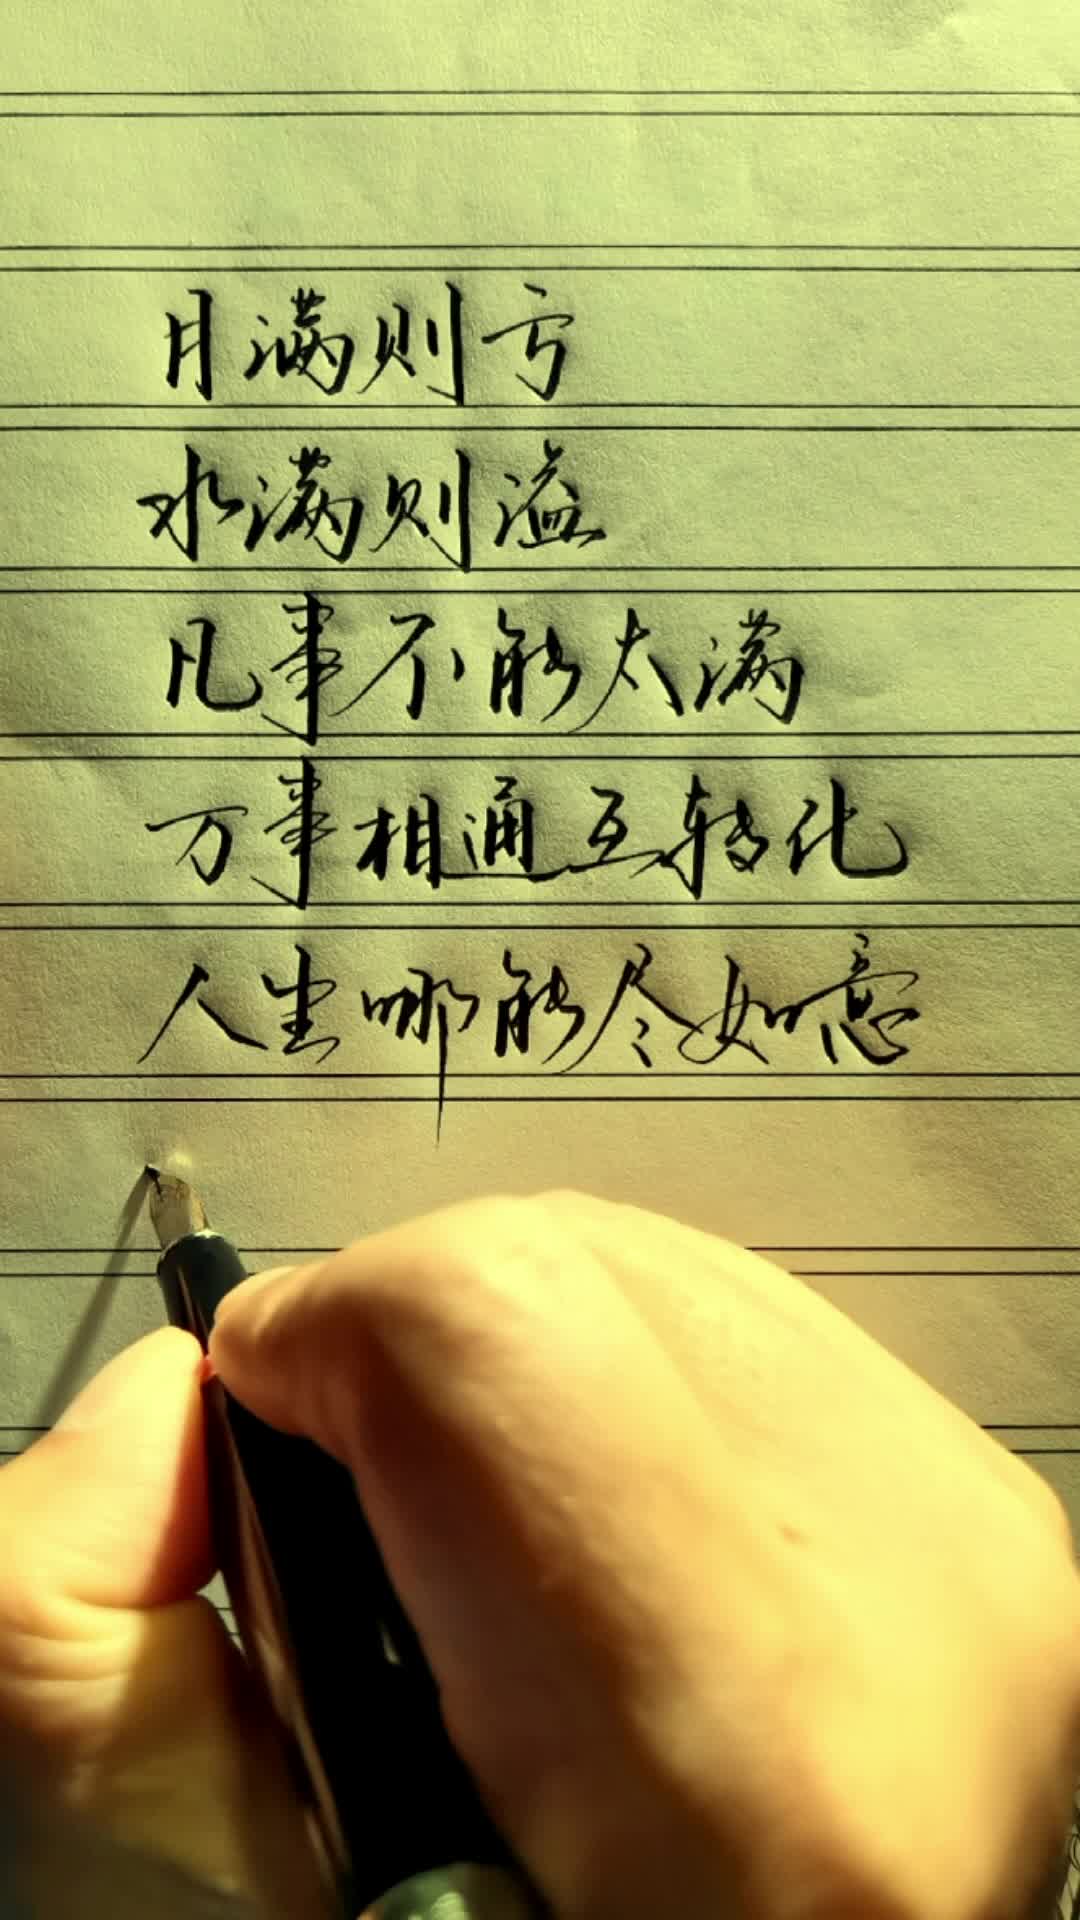 月满则亏
水满则溢
凡事不能太满
万事相通互转化
人生哪能尽如意